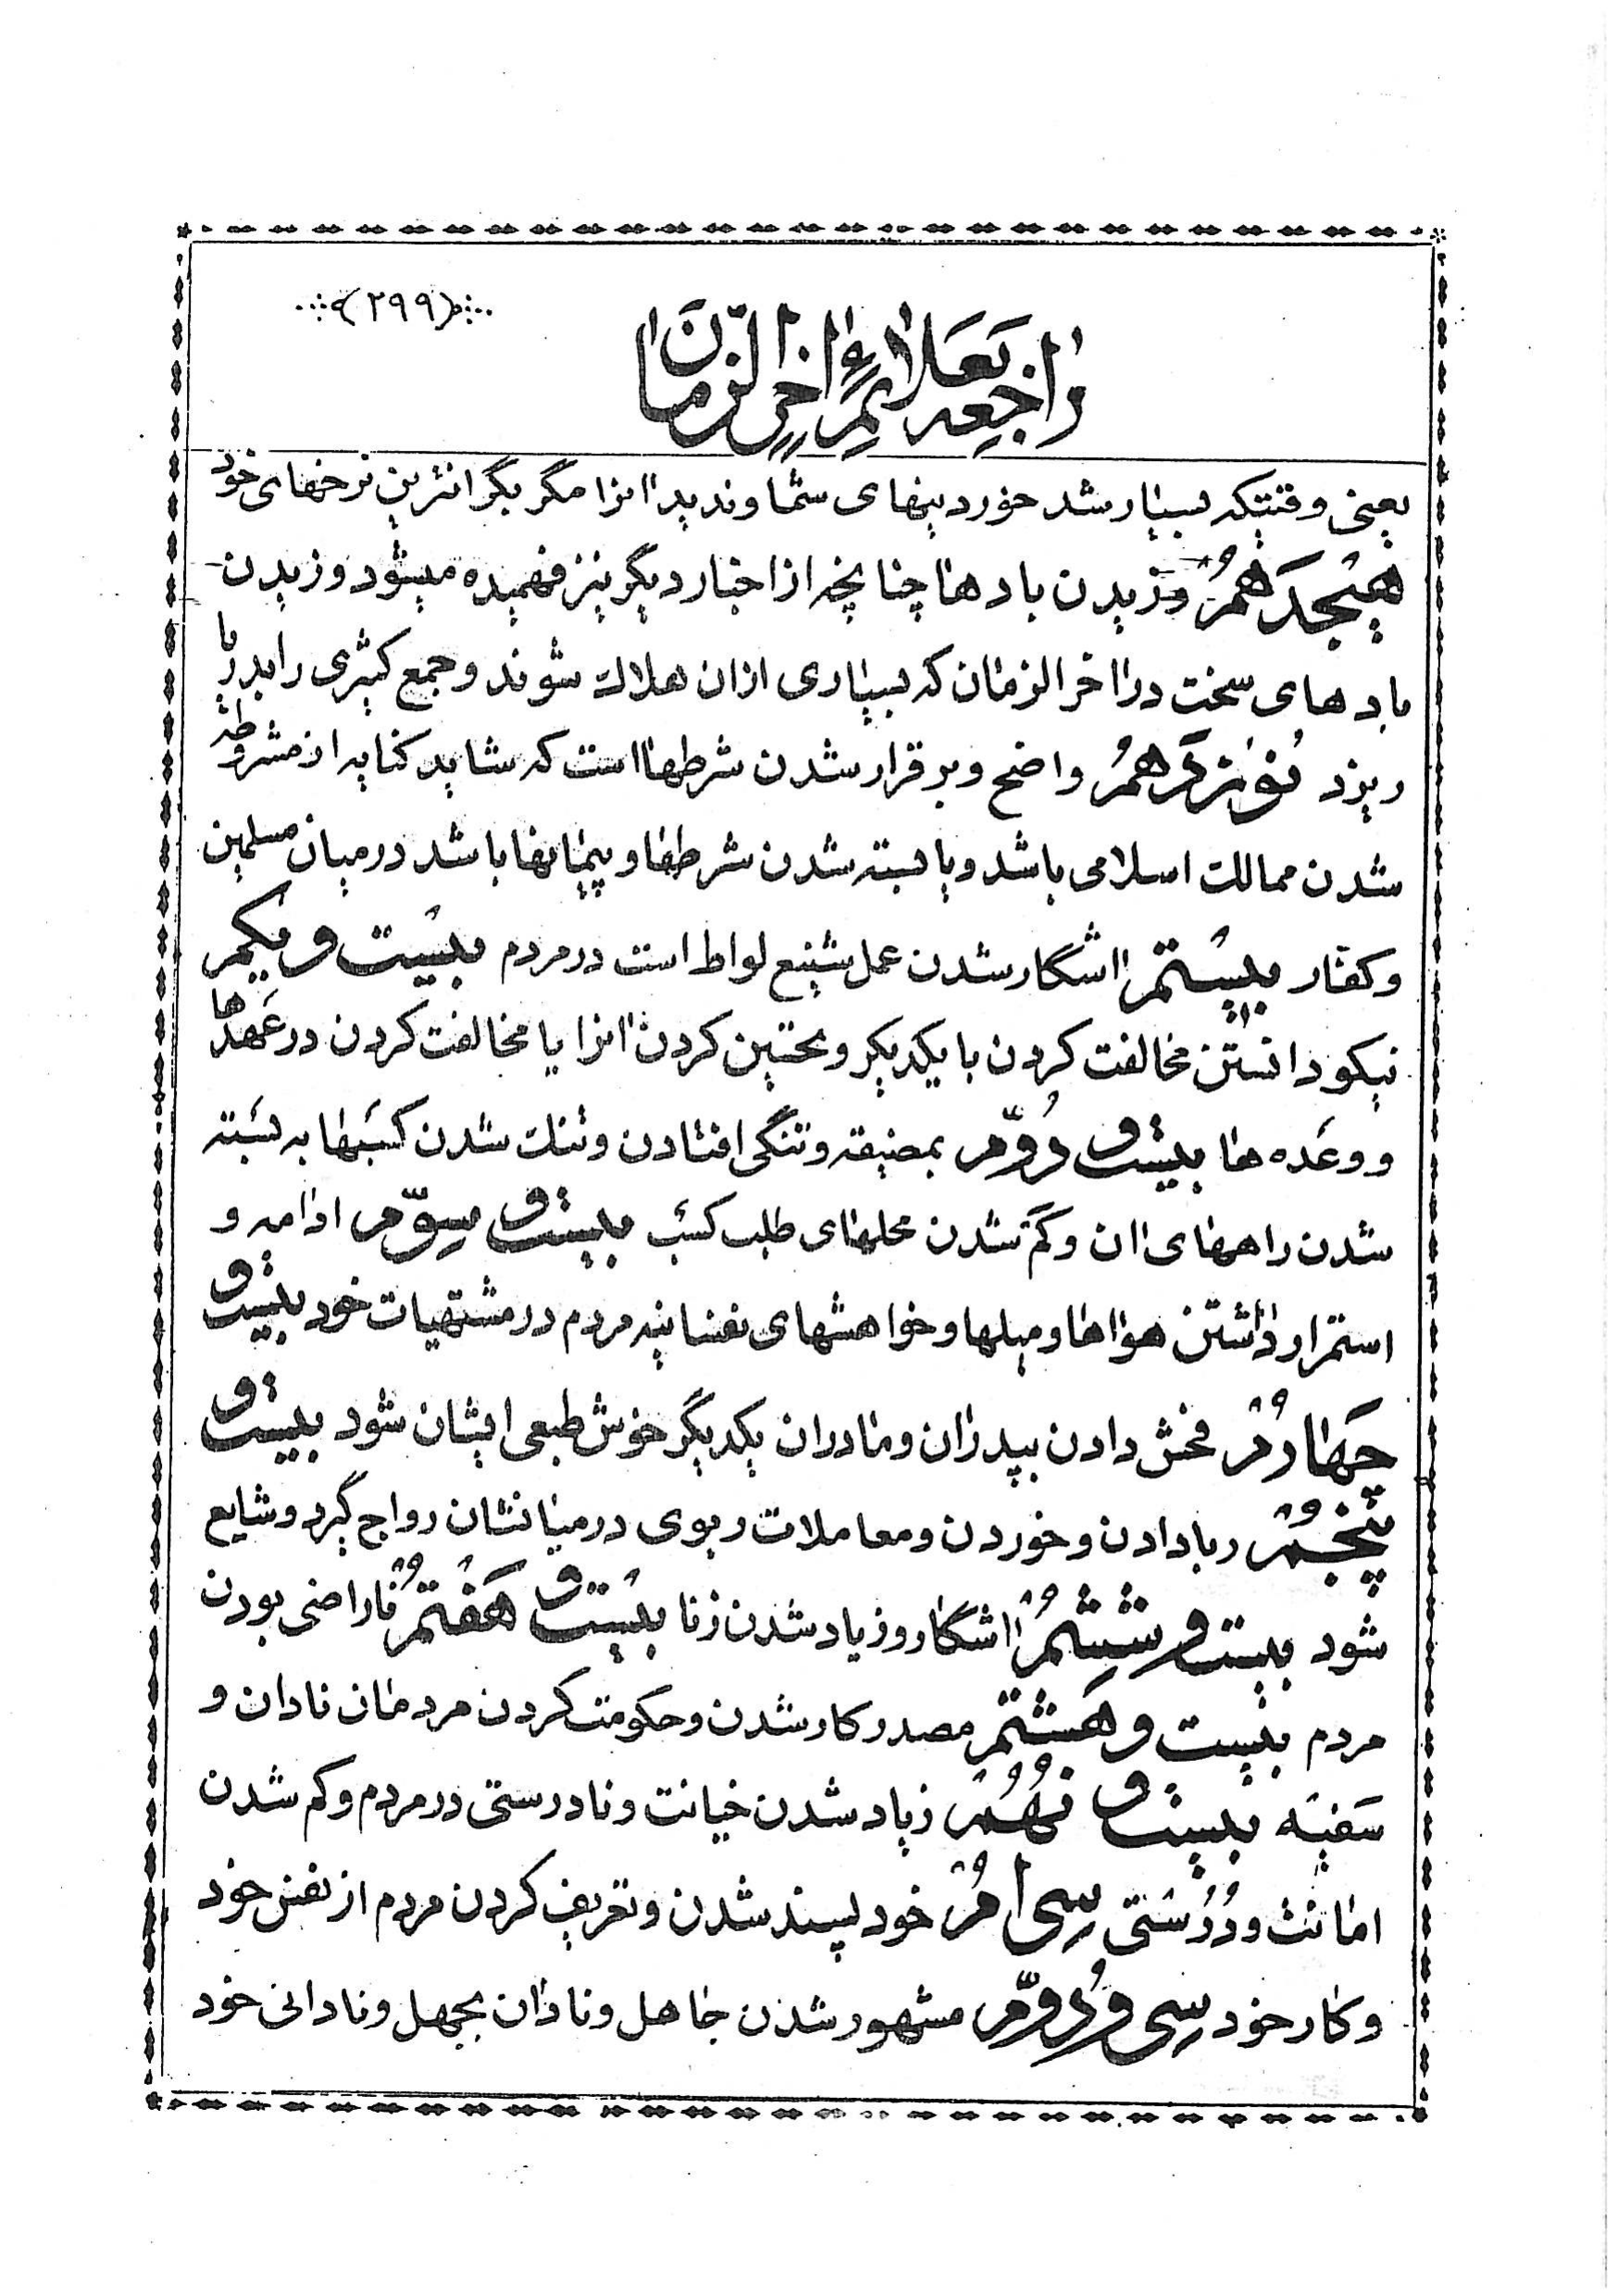 (۲۹۹)
راجعه بعلائم اخر الزمان
یعنی وقتیکه بسیار شد خورد بینهای شما وندید انرا مگر بگرانترین نرخهای خود
هیجدهم وزیدن بادها چنانچه از اخبار دیگر نیز فهمیده میشود وزیدن
بادهای سخت در اخر الزمان که بسیاری ازان هلاک شوند و جمع کثیری را بدریا
ریزد نوزدهم واضح و برقرار شدن شرطها است که شاید کنایه از مشروطه
شدن ممالک اسلامی باشد و یا بسته شدن شرطها و پیمانها باشد در میان مسلمین
و کفار بیستم اشگار شدن عمل شنیع لواط است در مردم بیست و یکم
نیکو دانستن مخالفت کردن با یکدیگر و تحسین کردن انرا یا مخالفت کردن در عهدها
و وعده ها بیست و دوم بمضیقه و تنگی افتادن و تنک شدن کسبها به بسته
شدن راههای ان و کم شدن محلهای طلب کسب بیست و سوم ادامه و
استمرار داشتن هواها و میلها و خواهشهای نفسانیه مردم در مشتهیات خود بیست و
چهارم فحش دادن بپدران و مادران یکدیگر خوش طبعی ایشان شود بیست و
پنجم ربا دادن و خوردن و معاملات ربوی در میانشان رواج گیرد و شایع
شود بیست و ششم اشگار و زیاد شدن زنا بیست و هفتم ناراضی بودن
مردم بیست و هشتم مصدر کار شدن و حکومت کردن مردمان نادان و
سفیه بیست و نهم زیاد شدن خیانت و نادرستی در مردم و کم شدن
امانت و درستی سی ام خود پسند شدن و تعریف کردن مردم از نفس خود
و کار خود سی و دوم مشهور شدن جاهل و نادان بجهل و نادانی خود